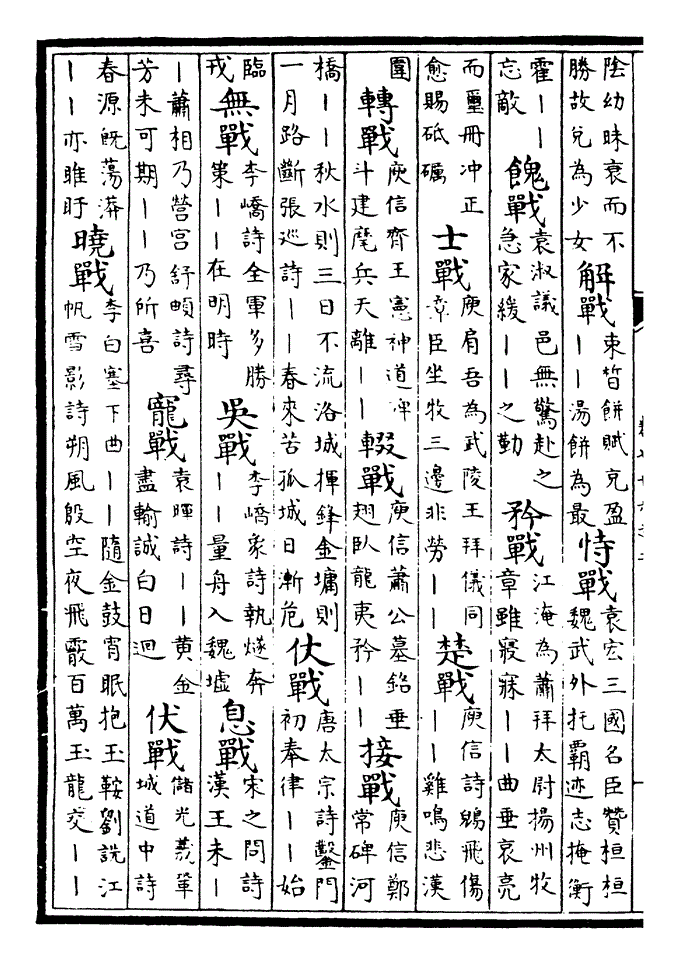 陰幼昧衰而不勝故兌為少女 解戰 束晳餅賦充盈——湯餅為最 恃戰 袁宏三國名臣贊桓桓魏武外托霸迹志掩衡
霍——忘敵 餽戰 袁淑議邑無驚赴之急家緩——之勤 矜戰 江淹為蕭拜太尉揚州牧章雖寢寐——曲垂哀亮
而璽冊冲正愈賜砥礪 士戰 庾肩吾為武陵王拜儀同章臣坐牧三邊非勞—— 楚戰 庾信詩鵶飛傷——雞鳴悲漢
圍 轉戰 庾信齊王憲神道碑斗建麾兵天離—— 輟戰 庾信蕭公墓銘垂翅臥龍夷矜—— 接戰 庾信鄭常碑河
橋——秋水則三日不流洛城揮鋒金墉則一月路斷張巡詩——春來苦孤城日漸危 伏戰 唐太宗詩鑿門初奉律——始
臨戎 無戰 李嶠詩全軍多勝策——在明時 吳戰 李嶠象詩執燧奔——量舟入魏墟 息戰 宋之問詩漢王未—
—蕭相乃營宫舒頔詩尋芳未可期——乃所喜 寵戰 袁暉詩——黃金盡輸誠白日迴 伏戰 儲光羲鞏城道中詩
春源旣蕩漭——亦睢盱 曉戰 李白塞下曲——隨金鼓宵眠抱玉鞍劉詵江帆雪影詩朔風殷空夜飛霰百萬玉龍交——